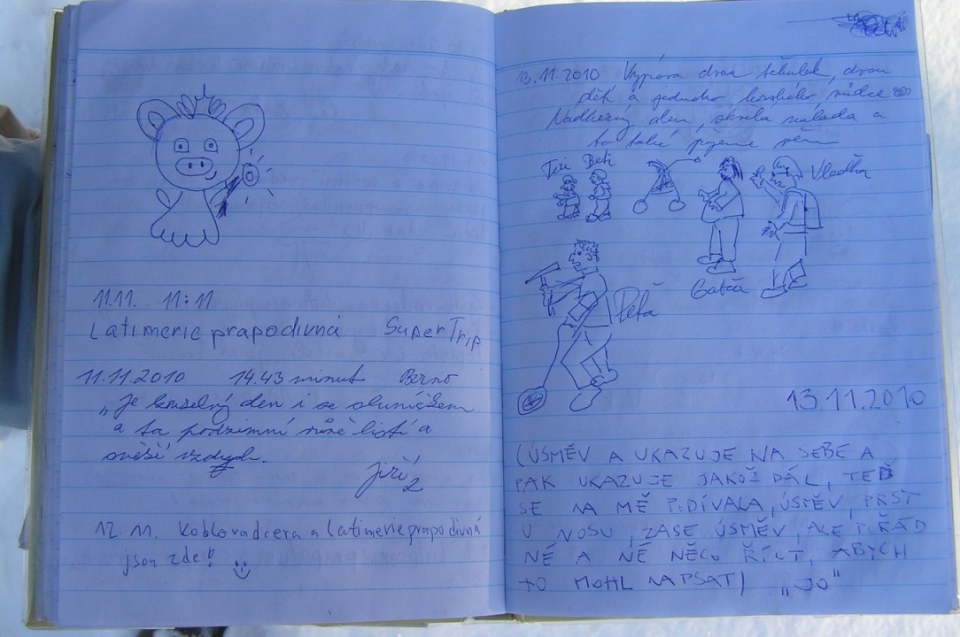 11.11. 11:11
Latimerie prapodivná SuperTrip
11.11.2010 14.43 minut Berno
„Je kouzelný den i se sluníčkem
a ta podzimní vůně listí a
svěží vzduch.
Jiří
12 11. Koblovadcera a Latimerieprapodivná
jsou zde!!
13.11.2010 Výprava dvou dětí
a jednoho
Nádherný den, skvělá nálada a
to také
Beti
Vlaďka
Peťa
13 11.2010
(ÚSMĚV A UKAZUJE NA SEBE A
PAK UKAZUJE JAKOŽ DÁL, TEĎ
SE NA MĚ PODÍVALA, ÚSMĚV, PRST
U NOSU, ZASE ÚSMĚV, ALE POŘÁD
NĚ A NĚ NĚCO ŘÍCT, ABYCH
TO MOHL NAPSAT) „JO“